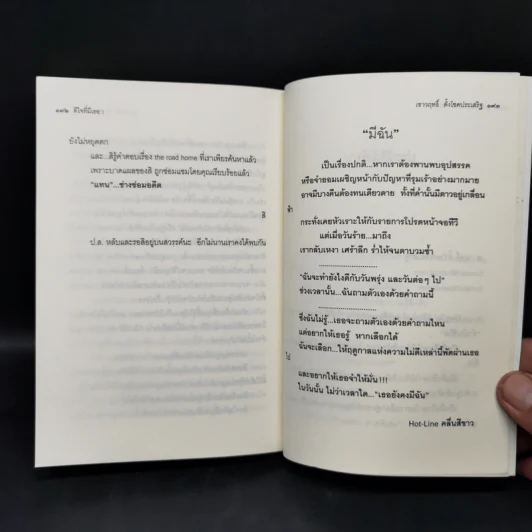 ๑๙๒ ดีใจที่มีเธอ
ยังไม่หยุดตก
และ...สิรู้คำตอบเรื่อง the road home ที่เราเพียรค้นหาแล้ว
เพราะบาดแผลของสิ ถูกซ่อมแซมโดยคุณเรียบร้อยแล้ว
"แทน"...ช่างซ่อมอดีต
สิ
ป.ล. หลับและรอสิอยู่บนสวรรค์นะ อีกไม่นานเราคงได้พบกัน
เชาวฤทธิ์ ตั้งโชคประเสริฐ ๑๙๓
"มีฉัน"
เป็นเรื่องปกติ...หากเราต้องพานพบอุปสรรค
หรือจำยอมเผชิญหน้ากับปัญหาที่รุมเร้าอย่างมากมาย
อาจมีบางคืนต้องทนเดียวดาย ทั้งที่ค่ำนั้นมีดาวอยู่เกลื่อน
ฟ้า
กระทั่งเคยหัวเราะให้กับรายการโปรดหน้าจอทีวี
แต่เมื่อวันร้าย...มาถึง
เรากลับเหงา เศร้าลึก ร่ำไห้จนตาบวมช้ำ
........................
"ฉันจะทำยังไงดีกับวันพรุ่ง และวันต่อๆ ไป"
ช่วงเวลานั้น...ฉันถามตัวเองด้วยคำถามนี้
........................
ซึ่งฉันไม่รู้...เธอจะถามตัวเองด้วยคำถามไหน
แต่อยากให้เธอรู้ หากเลือกได้
ฉันจะเลือก...ให้ฤดูกาลแห่งความไม่ดีเหล่านี้พัดผ่านเธอ
ไป
และอยากให้เธอจำให้มั่น !!!
ในวันนั้น ไม่ว่าเวลาใด..."เธอยังคงมีฉัน"
Hot-Line คลื่นสีขาว